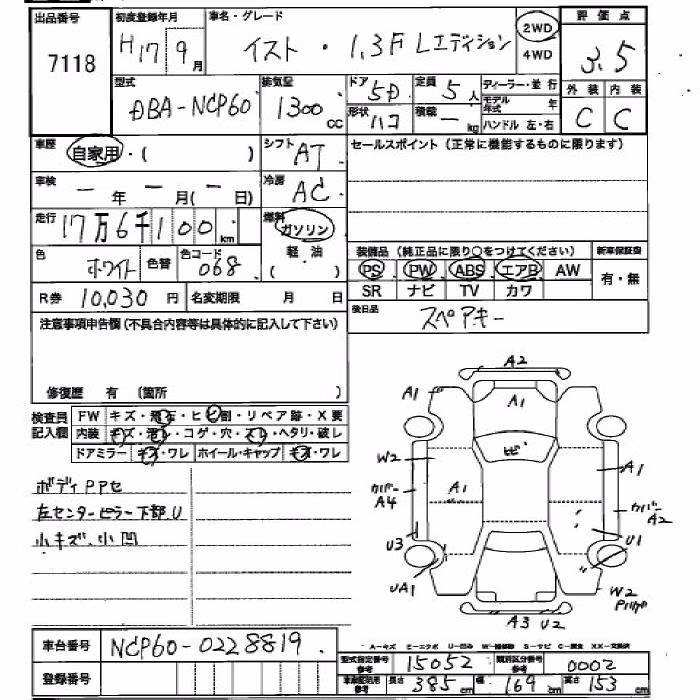 出品番号 初度登録年月 車名・グレード 評価点
7118 H17 9月 イスト・1.3F Lエディション 2WD 4WD 3.5
型式 排気量 ドア 5D 定員 5人 ディーラー・並行 外装 内装
DBA-NCP60 1300cc 形状 ハコ 積載 ー kg モデル年式 年 ハンドル 左・右 C C
車歴 自家用・( ) シフト AT セールスポイント(正常に機能するものに限ります)
車検 ー 年 ー 月(ー日) 冷房 AC
走行 17万6千100km 燃料 ガソリン 軽・油 ( )
色 ホワイト 色替 色コード 068 装備品(純正品に限り○をつけてください) 新車保証書
PS PW ABS エアB AW 有・無
R券 10,030円 名変期限 月 日 SR ナビ TV カワ
注意事項申告欄(不具合内容等は具体的に記入して下さい) 後日品 スペアキー
修復歴 有 (箇所 )
検査員記入欄 FW キズ・飛石・ヒビ割・リペア跡・X要
内装 キズ・汚レ・コゲ・穴・スレ・ヘタリ・破レ
ドアミラー キズ・ワレ ホイール・キャップ キズ・ワレ
ボディPPセ
左センターピラー下部U
小キズ、小凹
A2
A1 A1
ヒビ
W2 A1
カバー A4 A1 カバー A2
U3 U1
UA1 W2
A3 U2
A-キズ E-エクボ U-凹み W-補修跡 S-サビ C-腐食 XX-交換済
車台番号 NCP60-0228819.
登録番号
型式指定番号 参考 15052 類別区分番号 参考 0002
車検証記載 参考 長さ 385cm 幅 169cm 高さ 153cm